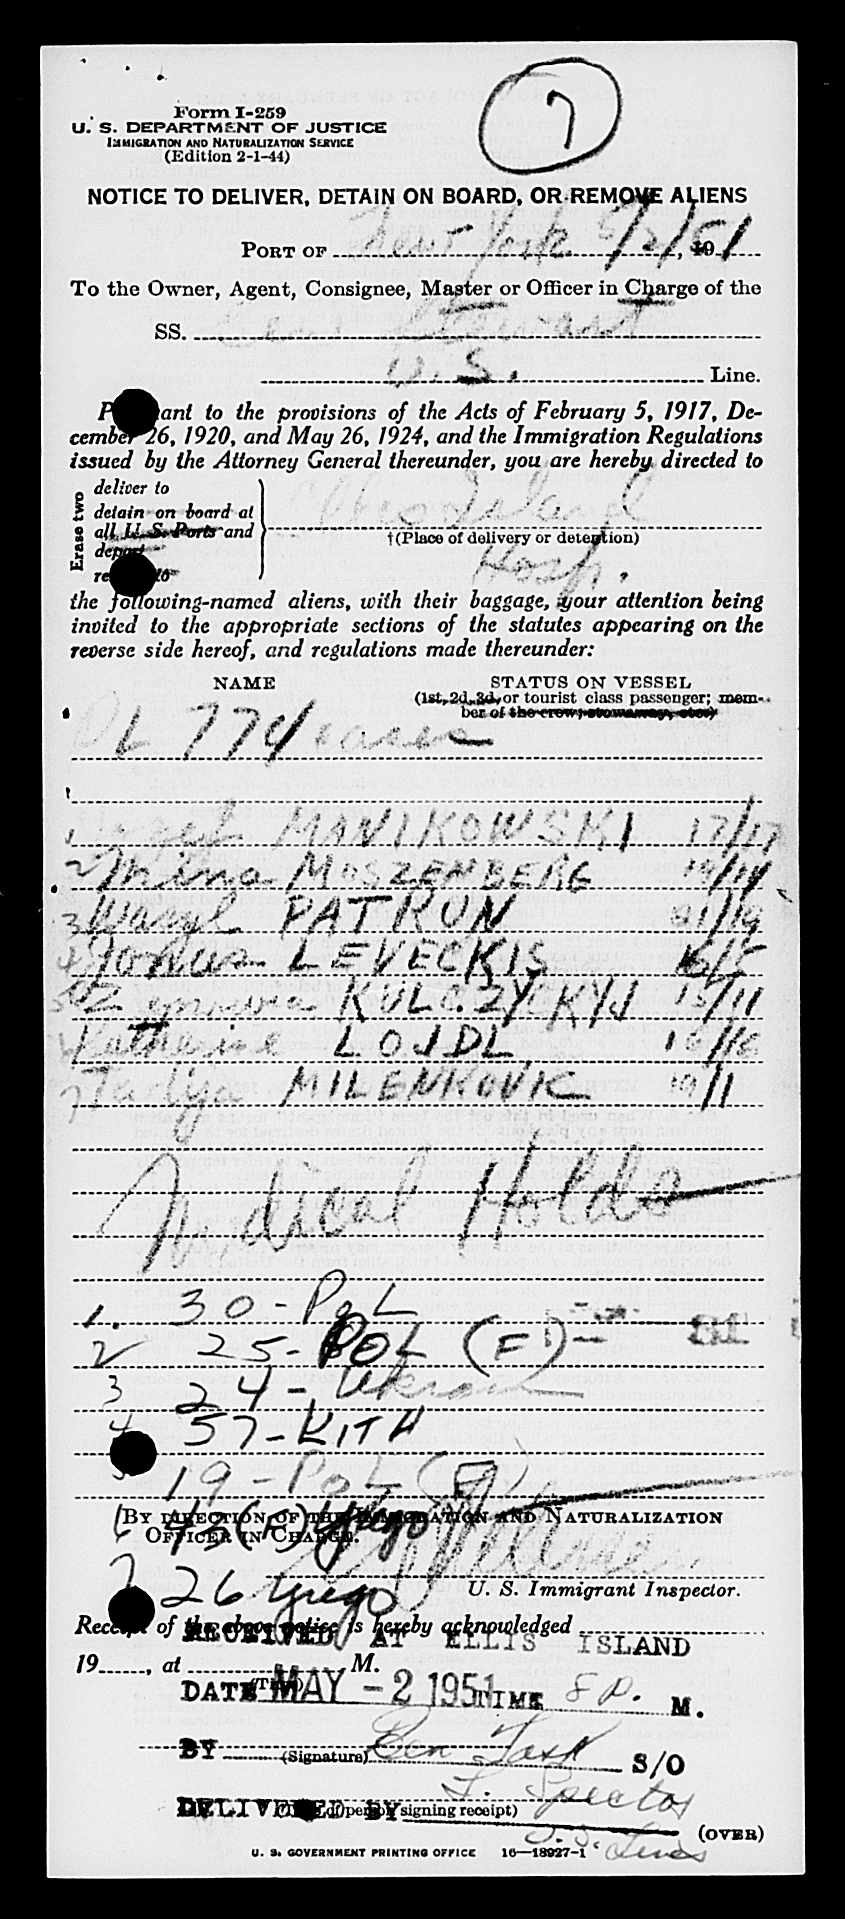 7
Form I-259
U. S. DEPARTMENT OF JUSTICE
IMMIGRATION AND NATURALIZATION SERVICE
(Edition 2-1-44)
NOTICE TO DELIVER, DETAIN ON BOARD, OR REMOVE ALIENS
PORT OF New York 5/2/51, 19
To the Owner, Agent, Consignee, Master or Officer in Charge of the
SS. Stewart
U.S. Line.
Pursuant to the provisions of the Acts of February 5, 1917, De-
cember 26, 1920, and May 26, 1924, and the Immigration Regulations
issued by the Attorney General thereunder, you are hereby directed to
Erase two
deliver to
detain on board at
all U. S. Ports and
depart
Island
†(Place of delivery or detention)
Hosp.
the following-named aliens, with their baggage, your attention being
invited to the appropriate sections of the statutes appearing on the
reverse side hereof, and regulations made thereunder:
NAME STATUS ON VESSEL
(1st, 2d, 3d, or tourist class passenger; mem-
ber of the crew, stowaway, etc.)
PL 774 cases
1 MANIKOWSKI 17/17
2 Mina MOSZENBERG 19/14
3 Wasyl PATRUN 21/19
4 Jonas LEVECKIS
5 KULCZYCKYJ 13/11
6 Katherine LOJDL 16/16
7 MILENKOVIC 19/1
Medical Holds
1. 30 - POL
2 25 - POL (F)
3 24 - Ukrain
4 57 - LITH
5 19 - POL (F)
6 (F) Yugo
7 26 Yugo
BY DIRECTION OF THE IMMIGRATION AND NATURALIZATION
OFFICER IN CHARGE.
U. S. Immigrant Inspector.
Receipt of the above notice is hereby acknowledged
19 , at M.
RECEIVED AT ELLIS ISLAND
(Time)
DATE MAY - 2 1951 TIME 8 P. M.
BY Ben S/O
(Signature)
L. Spector
DELIVERED BY
(Title of person signing receipt)
U.S. Lines
(OVER)
U. S. GOVERNMENT PRINTING OFFICE 16—18927-1